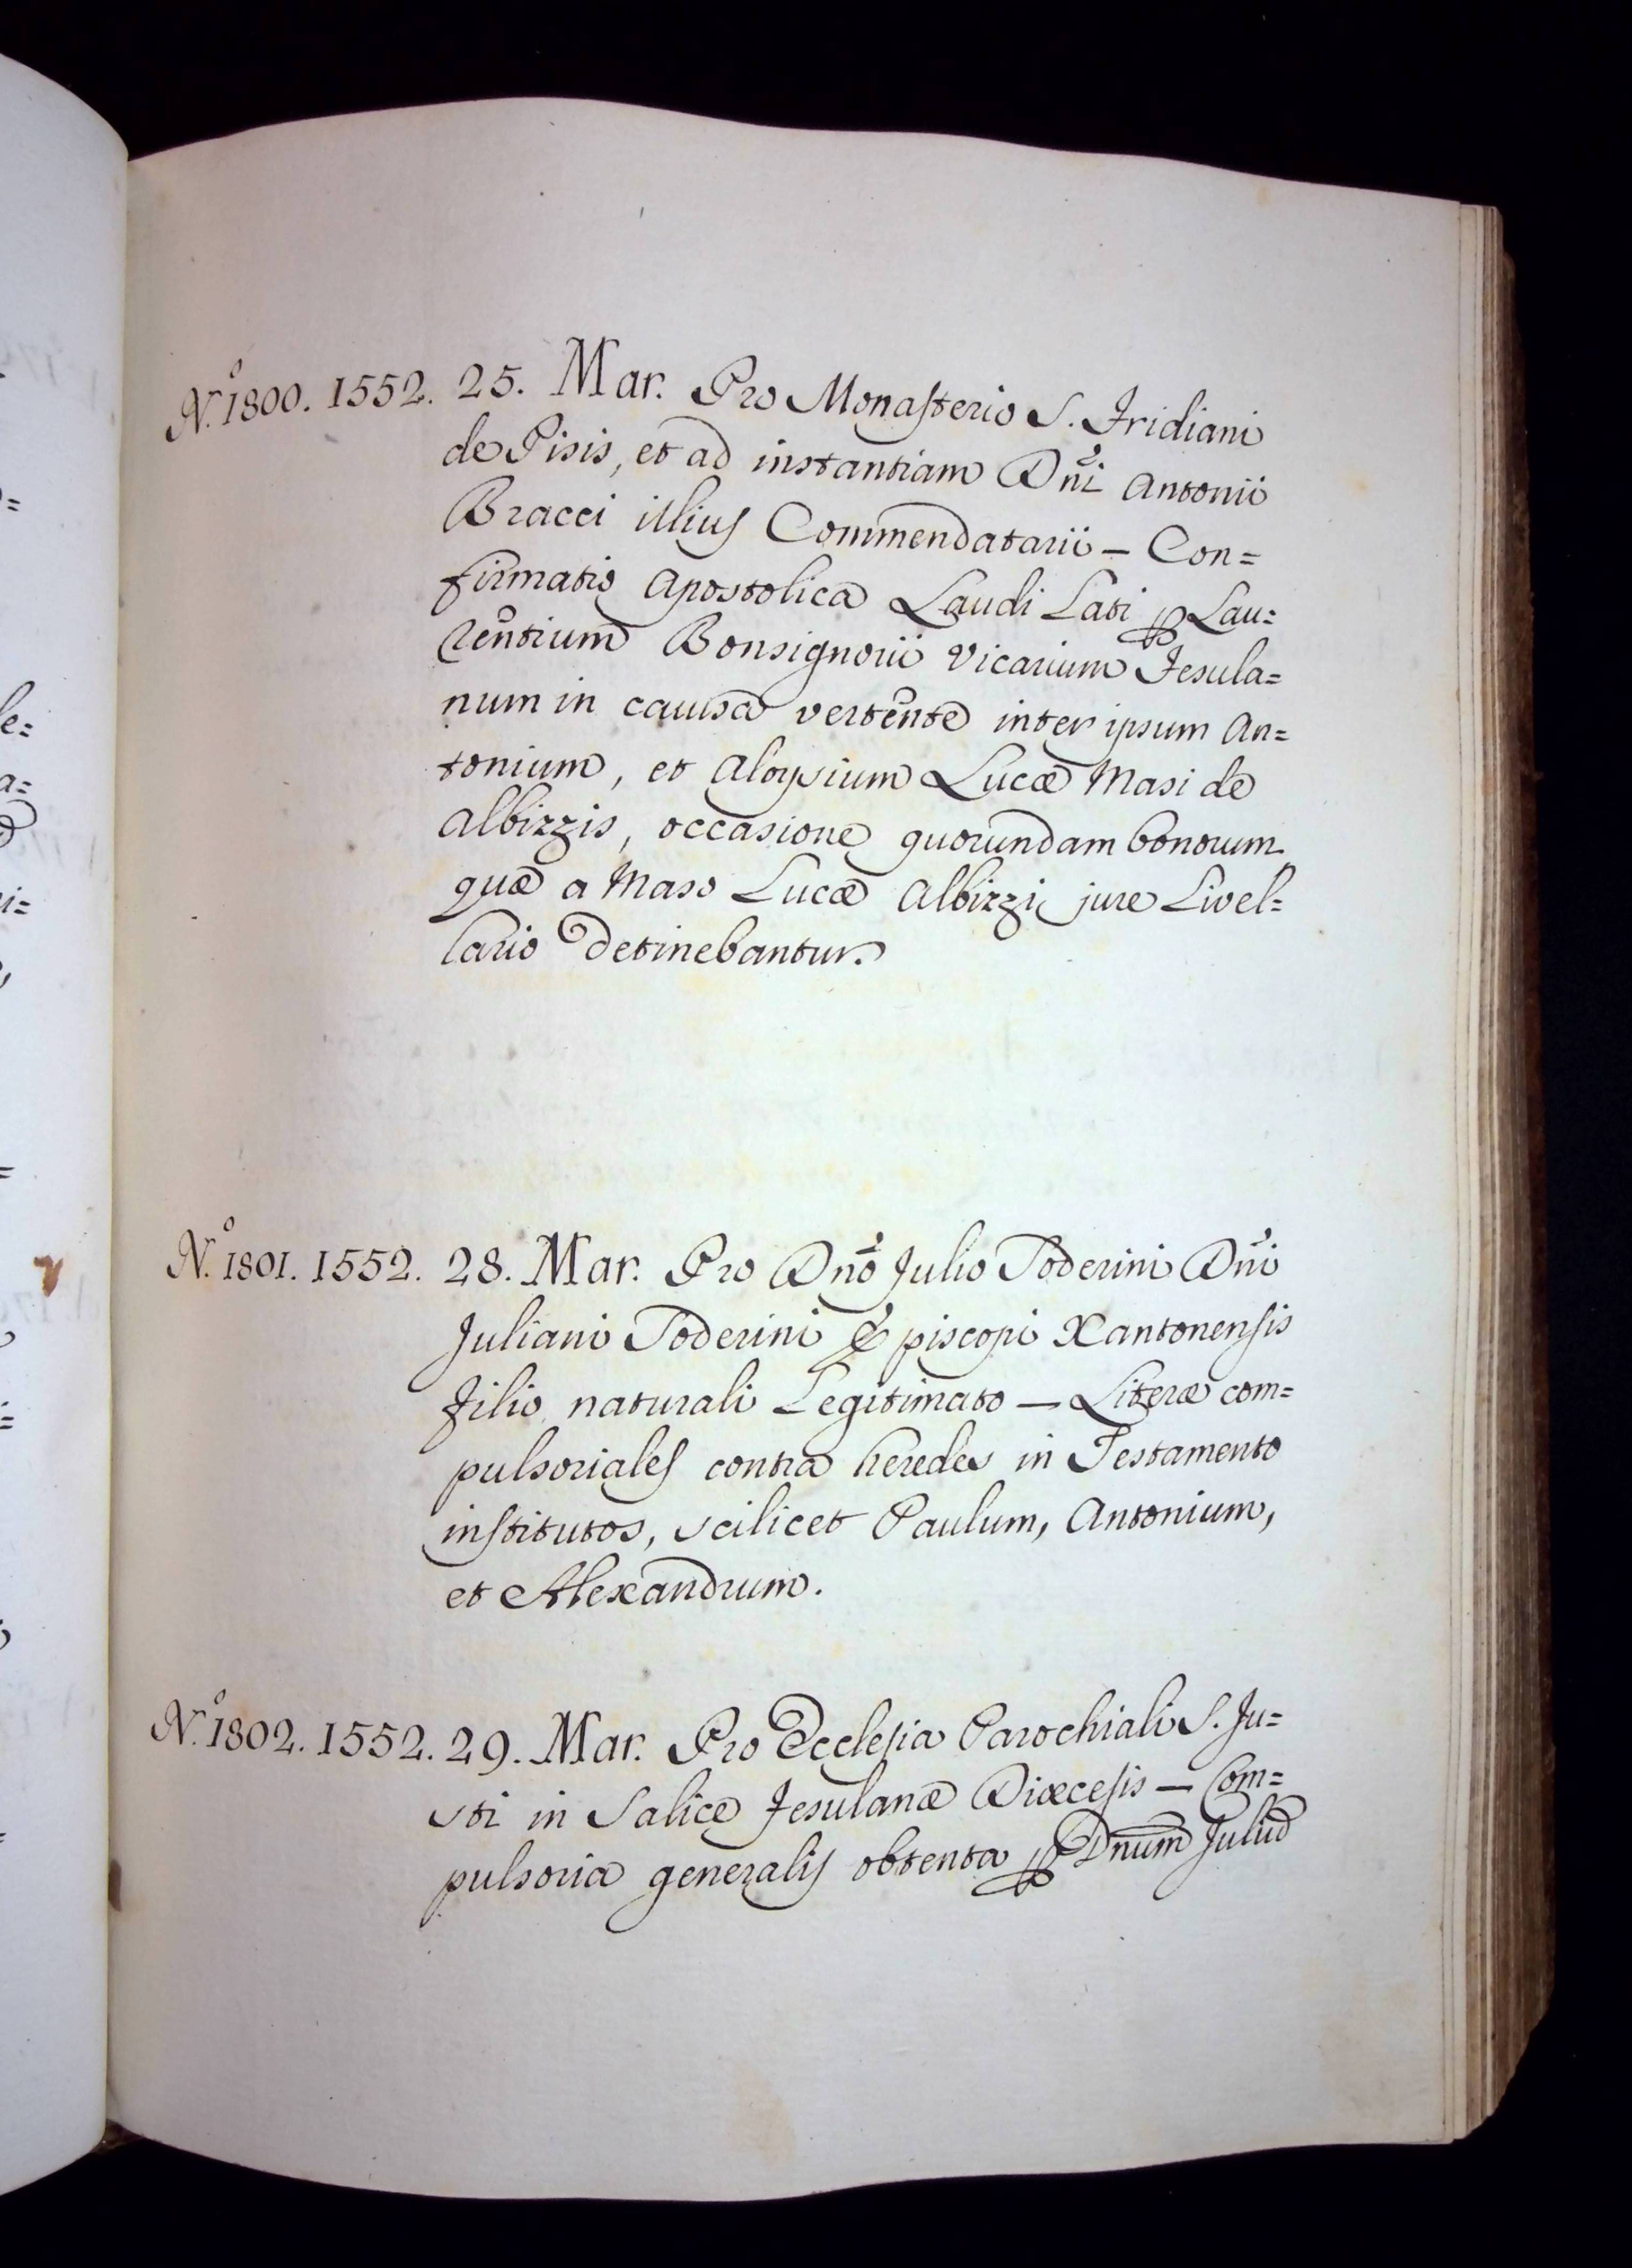 N.º 1800. 1552. 25. Mar. Pro Monasterio S. Fridiani
de Pisis, et ad instantiam Dñi Antonii
Bracci illius Commendatarii – Con=
firmatio Apostolica Laudi Lati ꝑ Lau=
rentium Bonsignorii Vicarium Fesula=
num in causa vertente inter ipsum An=
tonium, et Aloysium Lucæ Masi de
Albizzis, occasione quorundam bonorum
quæ a Maso Lucæ Albizzi jure Livel=
lario detinebantur.
N.º 1801. 1552. 28. Mar. Pro Dño Julio Soderini Dñi
Juliani Soderini Episcopi Xantonensis
filio naturali Legitimato – Literæ com=
pulsoriales contra heredes in Testamento
institutos, scilicet Paulum, Antonium,
et Alexandrum.
N.º 1802. 1552. 29. Mar. Pro Ecclesia Parochiali S. Ju=
sti in Salice Fesulanæ Diœcesis – Com=
pulsoria generalis obtenta ꝑ Dnum Juliũ